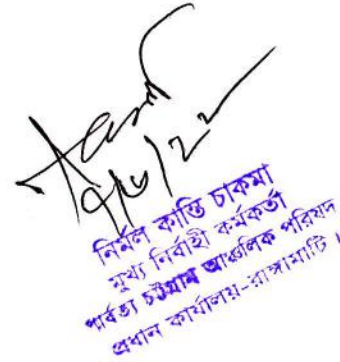 নির্মল কান্তি চাকমা
মুখ্য নির্বাহী কর্মকর্তা
পার্বত্য চট্টগ্রাম আঞ্চলিক পরিষদ
প্রধান কার্যালয়-রাঙ্গামাটি।